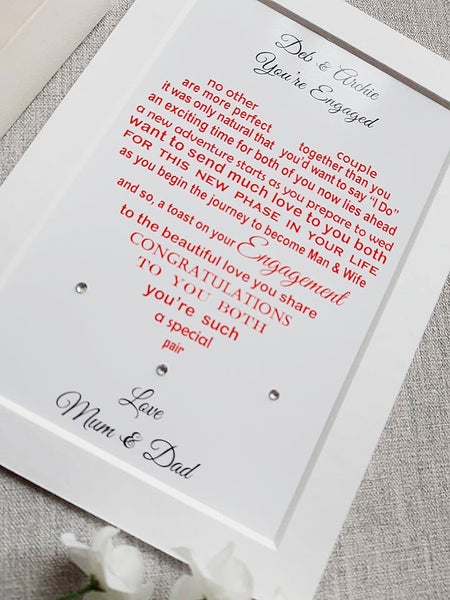 Deb & Archie
You're Engaged
no other couple
are more perfect together than you
it was only natural that you'd want to say "I Do"
an exciting time for both of you now lies ahead
a new adventure starts as you prepare to wed
want to send much love to you both
FOR THIS NEW PHASE IN YOUR LIFE
as you begin the journey to become Man & Wife
and so, a toast on your Engagement
to the beautiful love you share
CONGRATULATIONS
TO YOU BOTH
you're such
a special
pair
Love
Mum & Dad